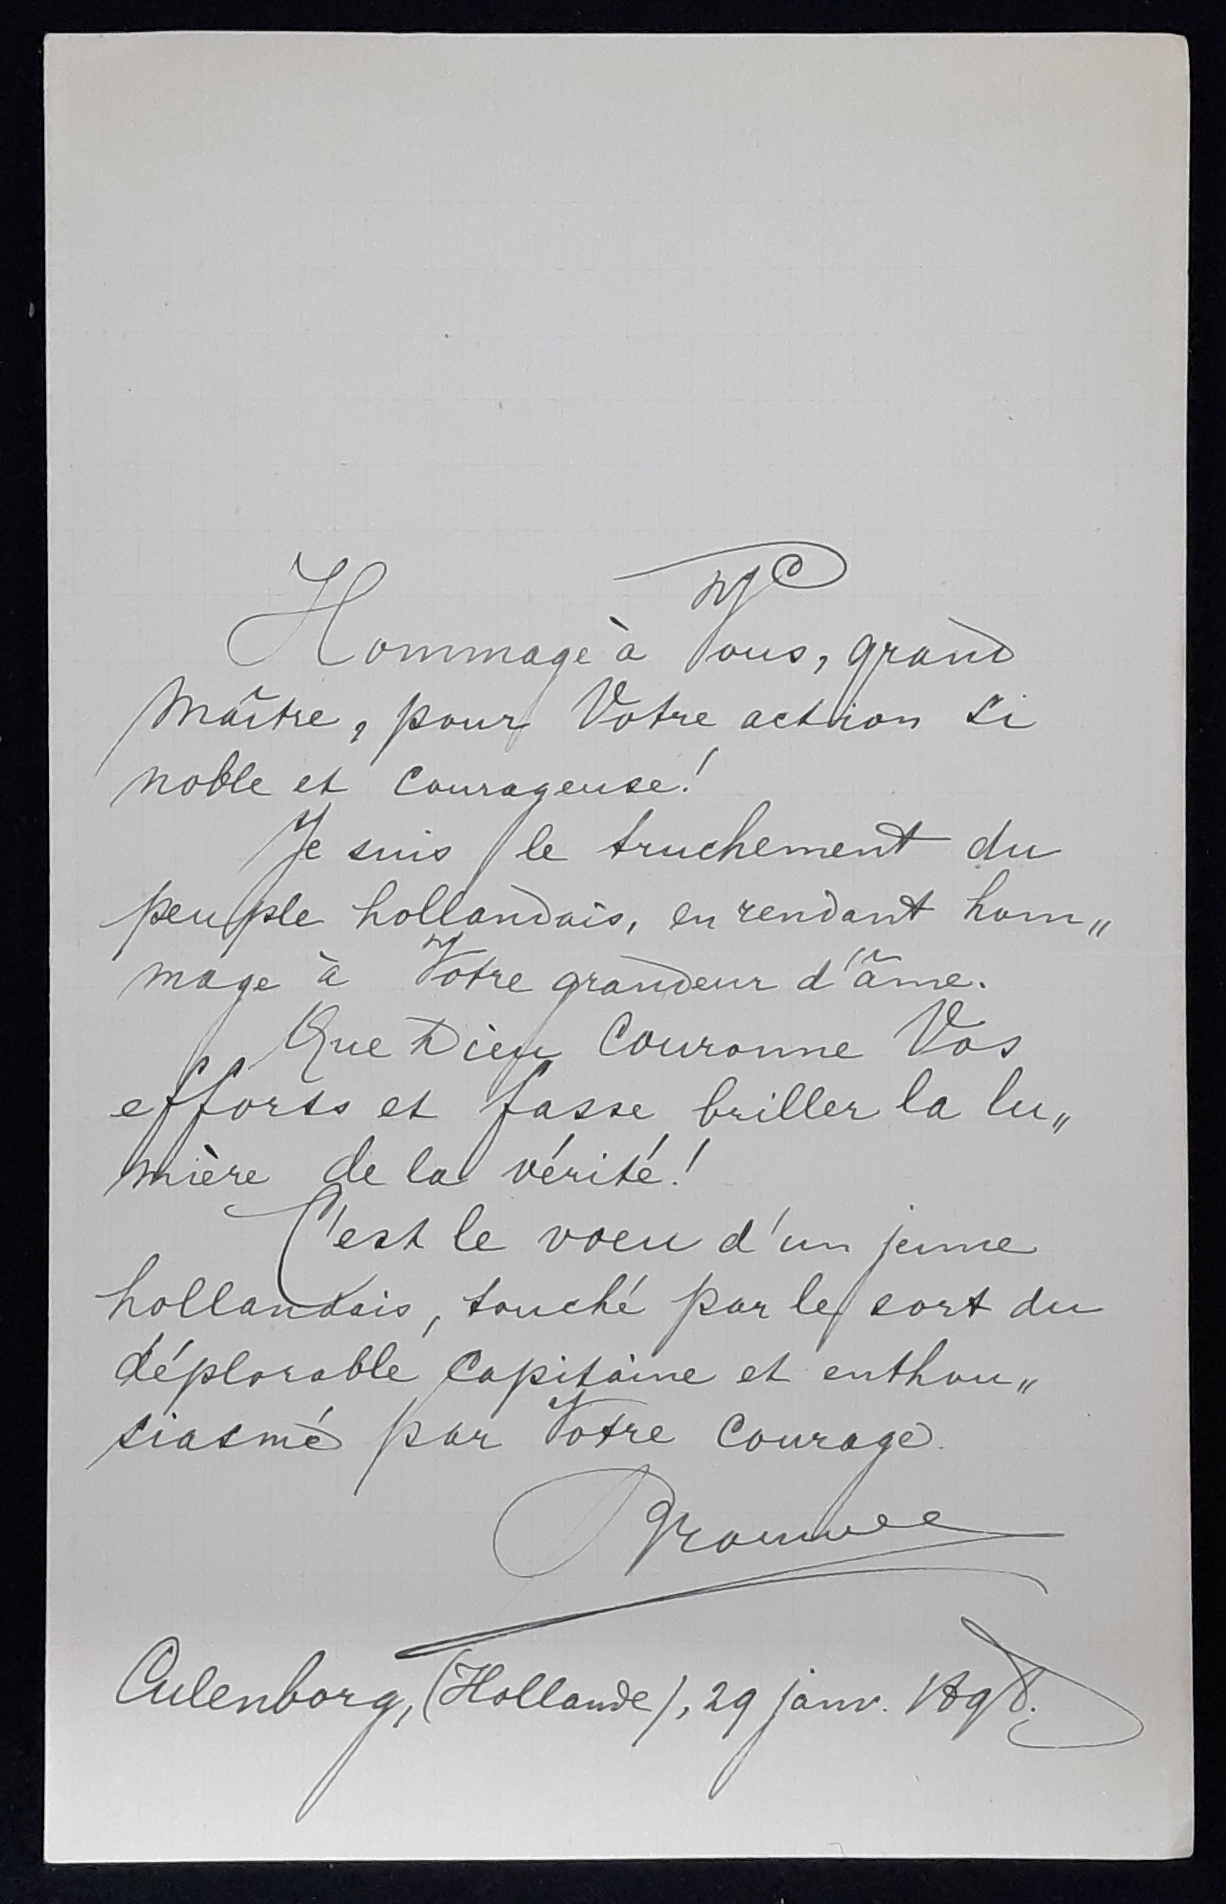 Hommage à Vous, grand
Maître, pour Votre action si
noble et courageuse!
Je suis le truchement du
peuple hollandais, en rendant hom„
mage à Votre grandeur d'âme.
Que Dieu couronne Vos
efforts et fasse briller la lu„
mière de la vérité!
C'est le voeu d'un jeune
hollandais, touché par le sort du
déplorable Capitaine et enthou„
siasmé par Votre courage.
Culenborg, (Hollande), 29 janv. 1898.